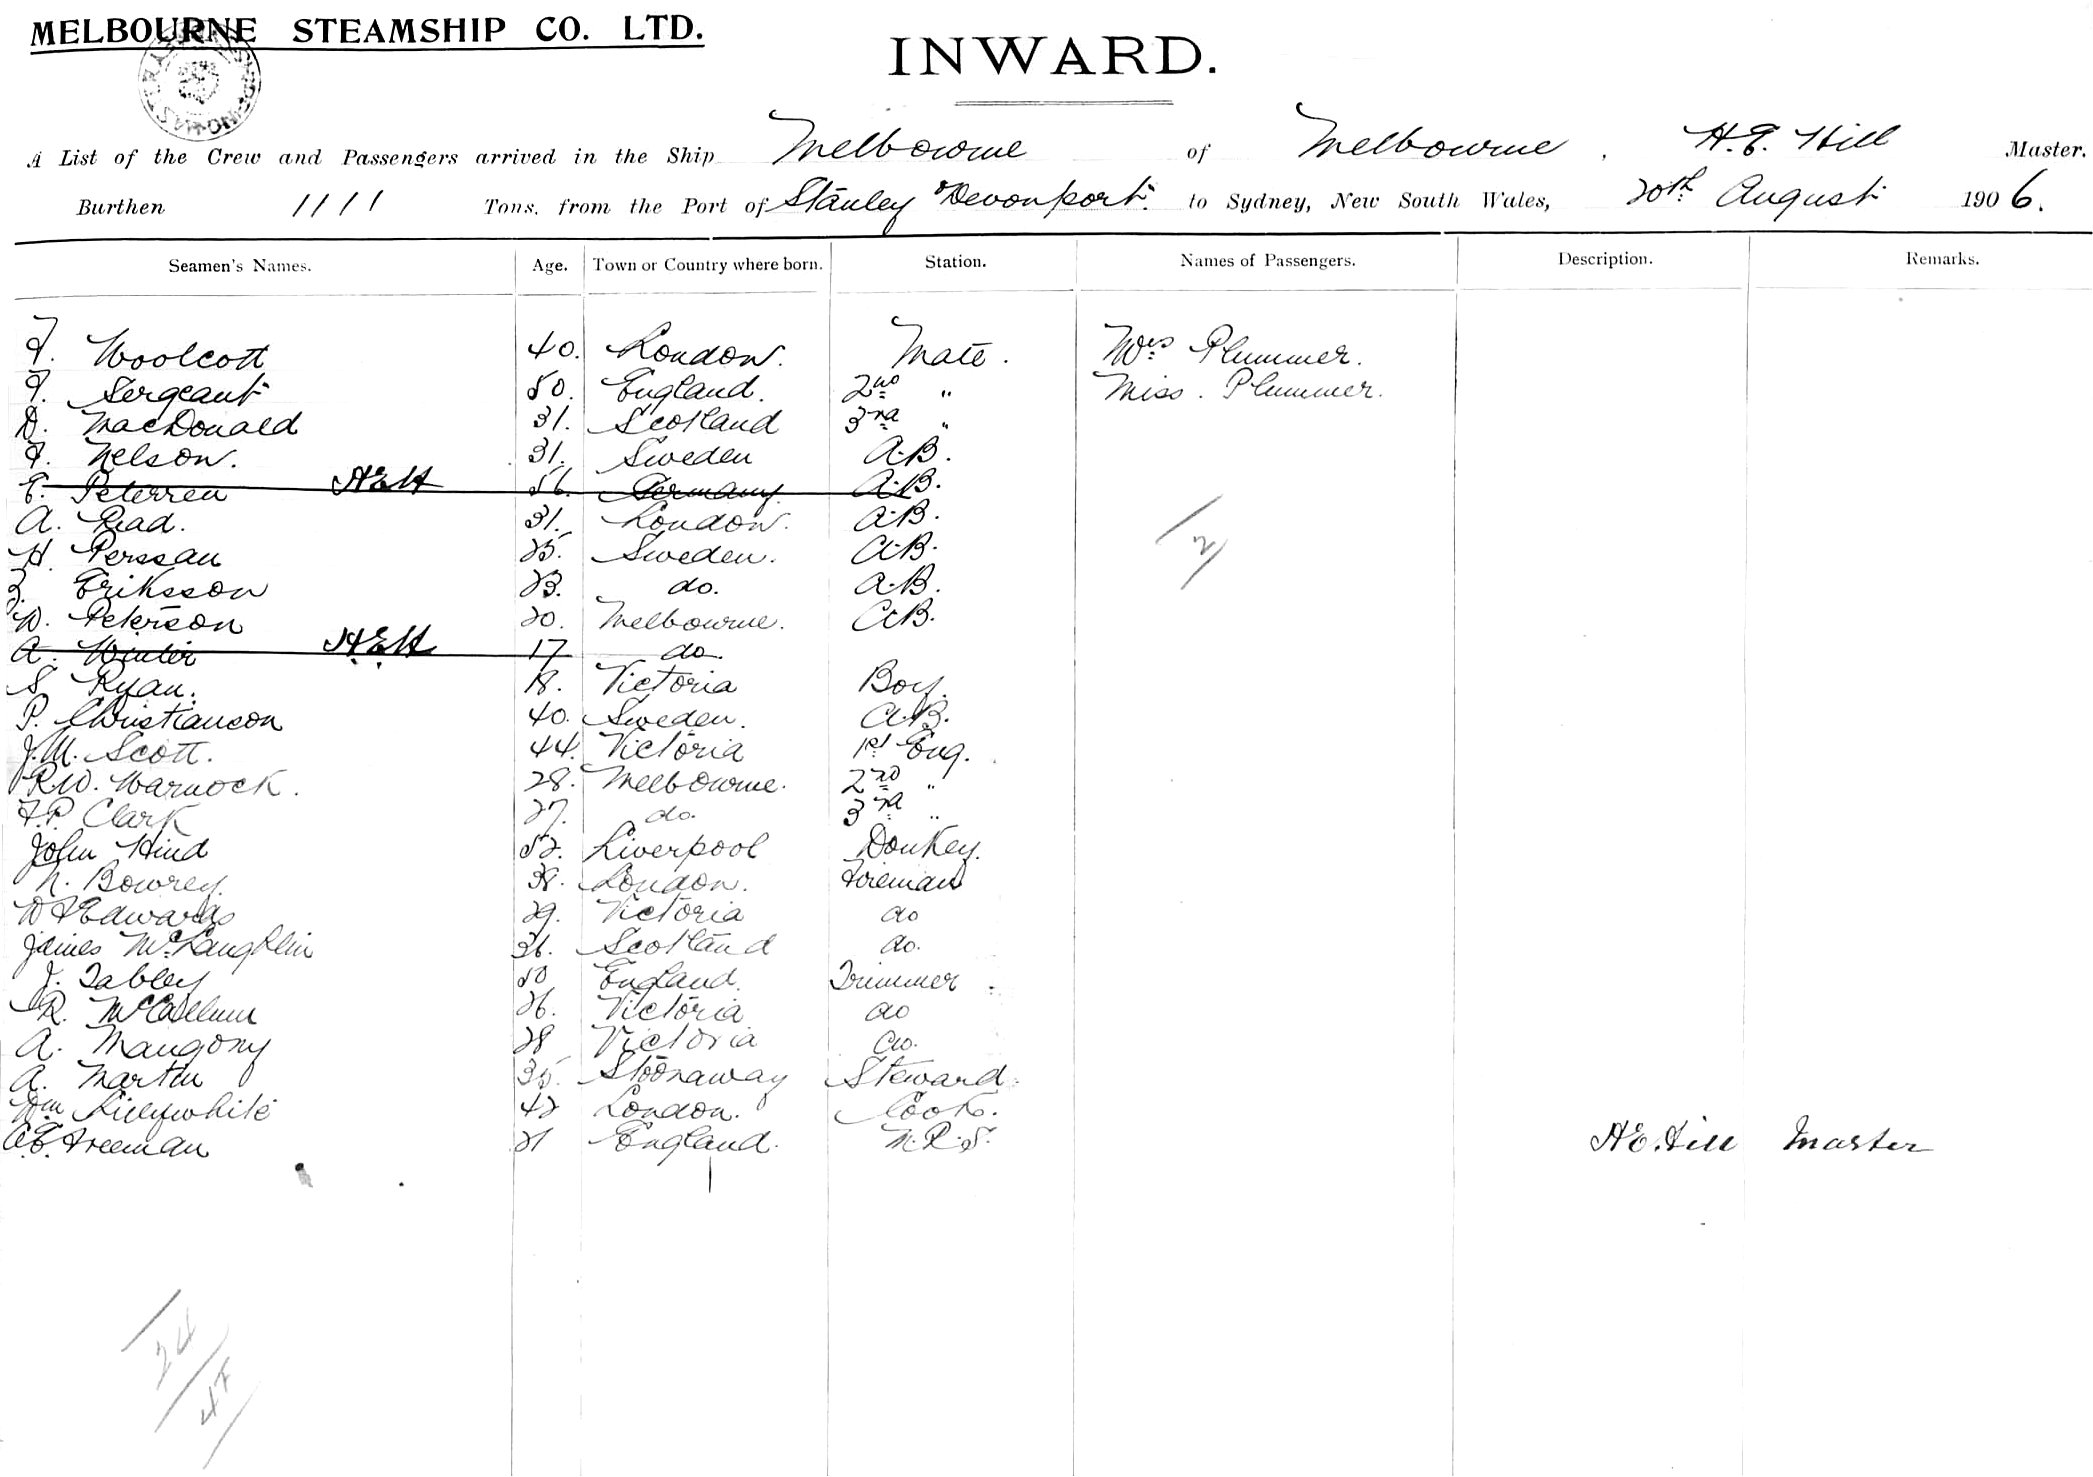 MELBOURNE STEAMSHIP CO. LTD.
INWARD.
A List of the Crew and Passengers arrived in the Ship Melbourne of Melbourne, H.E. Hill Master.
Burthen 1111 Tons, from the Port of Stanley & Devonport to Sydney, New South Wales, 20th August 1906.
Seamen's Names. Age. Town or Country where born. Station. Names of Passengers. Description. Remarks.
F. Woolcott 40. London. Mate. Mrs Plummer.
F. Sergeant 50. England. 2nd " Miss. Plummer.
D. MacDonald 31. Scotland 3rd "
F. Nelson. 31. Sweden A.B.
E. Peterren HEH 56. Germany. A.B.
A. Read. 31. London. A.B.
H. Perssan 25. Sweden. A.B.
Eriksson 23. do. A.B.
W. Peterson 20. Melbourne. A.B.
A. Winter HEH 17 do
S. Ryan. 18. Victoria Boy.
P. Christianson 40. Sweden. A.B.
J.M. Scott. 44. Victoria 1st Eng.
R.W. Warnock. 28. Melbourne. 2nd "
F.P. Clark 27. do. 3rd "
John Hind 52. Liverpool Donkey.
N. Bowrey. 38. London. Fireman
W F Edwards 29. Victoria do
James McLaughlin 36. Scotland do.
J. Tabley 50 England. Trimmer.
R. McCallum 26. Victoria do
A. Maugony 28 Victoria do.
A. Martin 35. Stoonaway Steward.
Wm Lillywhite 42 London. Cook.
A.E. Freeman 21 England. M.R.S. H E. Hill Master
2
24
47